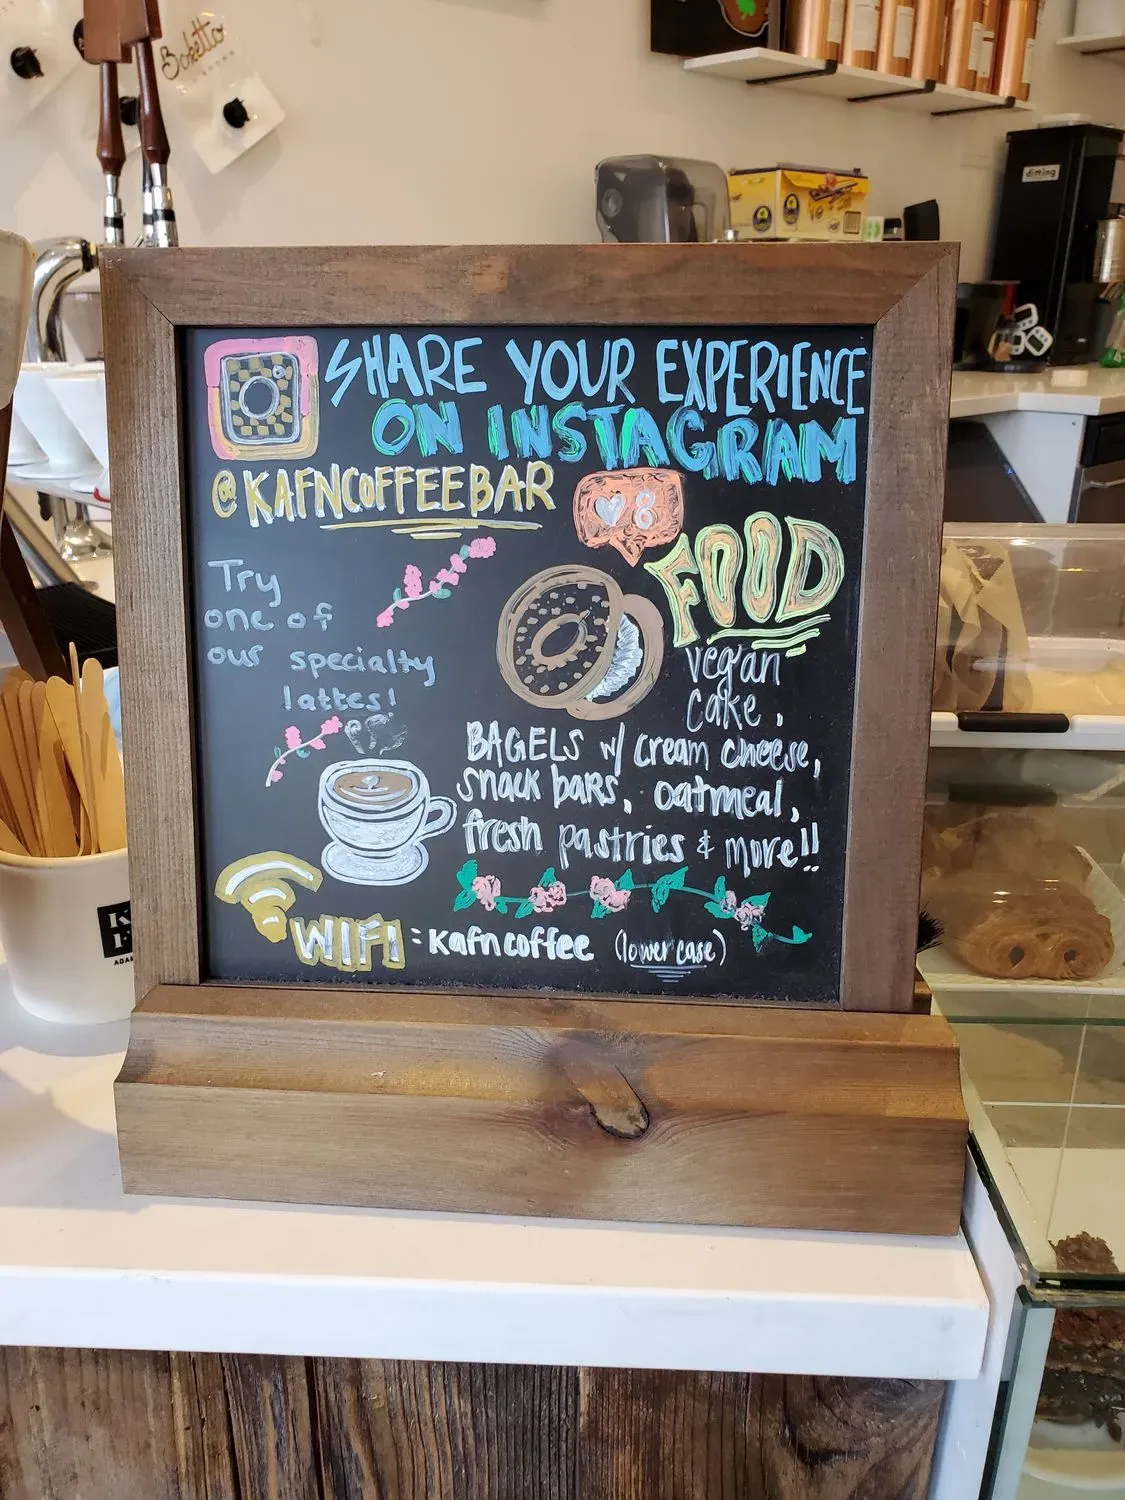 Boketto
ditting
SHARE YOUR EXPERIENCE
ON INSTAGRAM
@KAFNCOFFEEBAR
8
FOOD
Try
one of
our specialty
lattes!
vegan
cake.
BAGELS w/ cream cheese,
snack bars, oatmeal,
fresh pastries & more!!
WIFI: kafncoffee (lowercase)